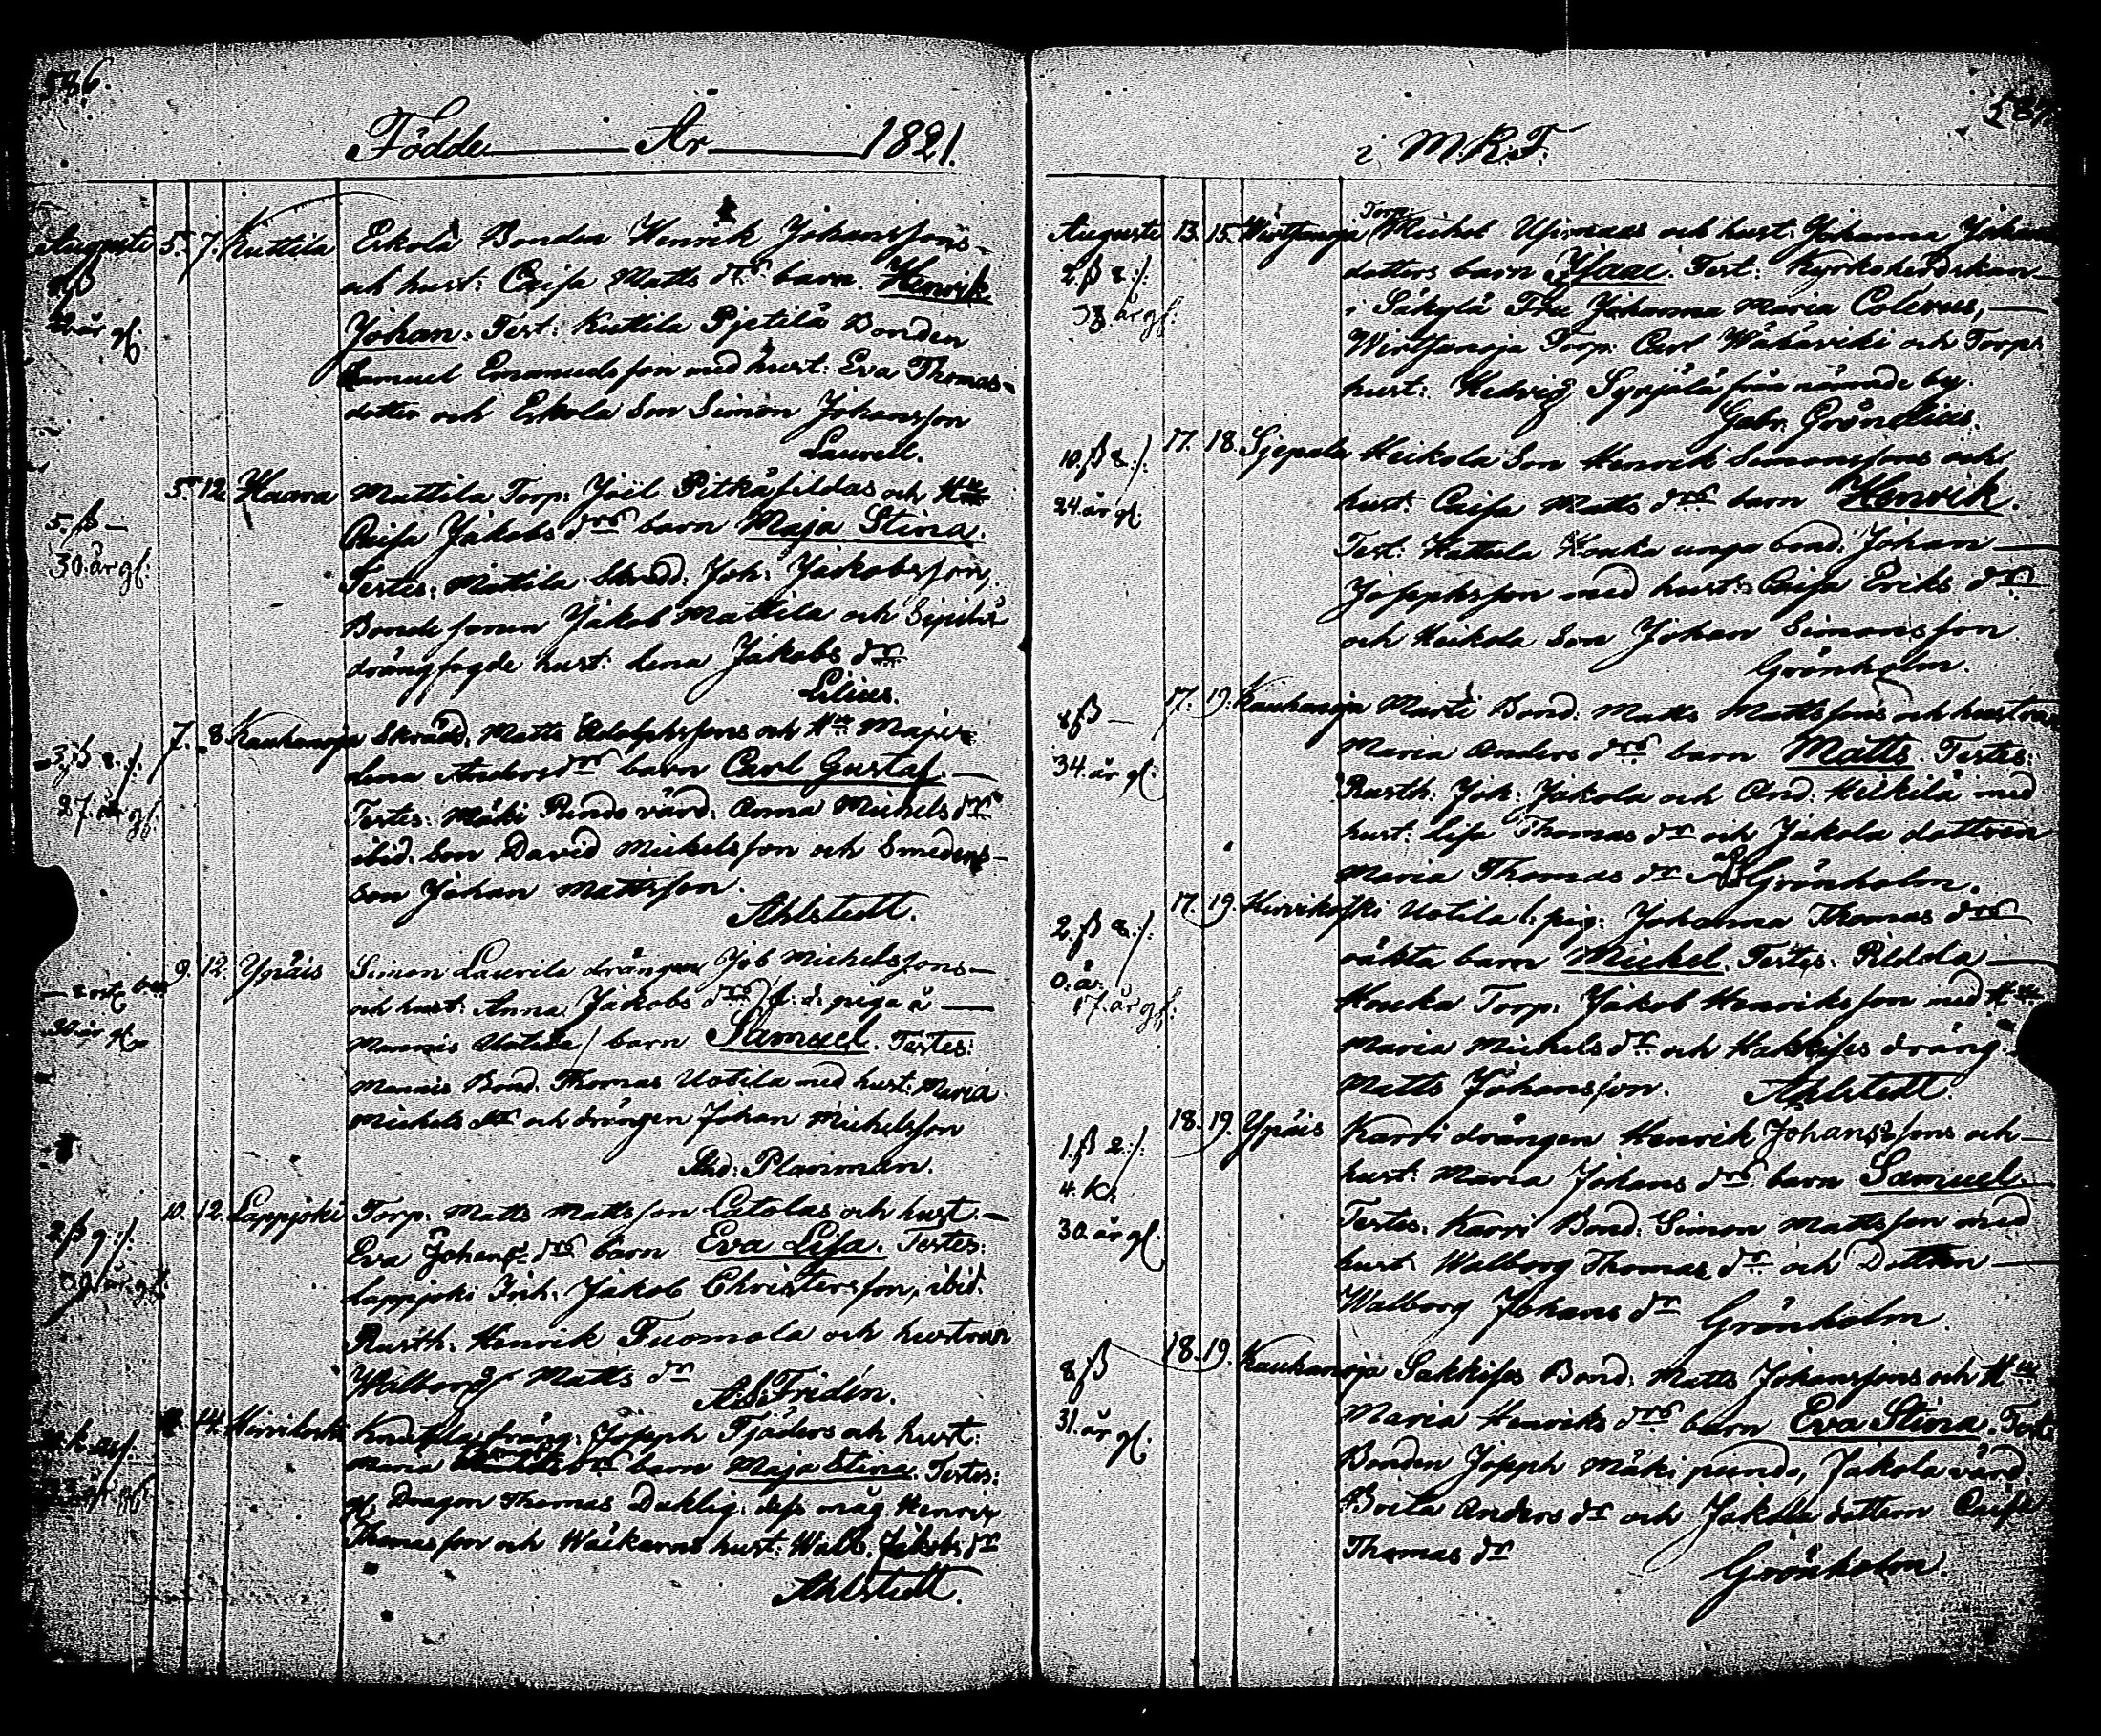 586.
Födde År 1821.
Augusti 5. 7. Kuttila Eskola Bonden Henrik Johanssons
och hust: Caisa Matts drs barn. Henrik
år gl. Johan. Test: Kuttila Pjetilä Bonden
Samuel Emanuelsson med hust: Eva Thomas-
dotter och Eskola Son Simon Johansson
Laurell.
5. 12. Haara Mattila Torp: Joël Pitkäsildas och Hu
5. ß — Caisa Jakobs drs barn Maja Stina.
30. år gl. Testes: Mattila Skrädd: Joh: Jackobsson,
Bonde sonen Jakob Mattila och
drängfogde hust: Lena Jakobs dr
Lilius.
7. 8 Kauhanoja Skrädd. Matts Adolphssons och Hu Maja
3. ß 2. /. Lena Anders drs barn Carl Gustaf. —
27. år gl. Testes: Mäki Pundo värd: Anna Michels dr
ibid. Son David Michelsson och Smedens-
son Johan Mattsson.
Ahlstedt.
9. 12. Ypäis Simon Laurila drängen Job Michelssons —
och hust: Anna Jakobs drs /f. d. piga å —
30. år gl. Mannis Uotila/ barn Samuel. Testes:
Mannis Bond. Thomas Uotila med hust: Maria
Michels dr och drängen Johan Michelsson
And: Planman.
10. 12. Lappjoki Torp. Matts Mattsson Latolas och hust. —
2. ß 9. /. Eva Johans drs barn Eva Lisa. Testes:
39. år gl. Lappjoki Inh. Jakob Christersson, ibid.
Rusth. Henrik Tuomola och hustrun
Walborg Matts dr
A. S. Fridén.
14. Hirvikoski dräng: Joseph Tjäders och hust:
Maria drs barn Maja Stina. Testes:
gl. Dragon Thomas Duktig. dess måg Henrik
Thomasson och Wäkarns hust: Walb. Jakobs dr
Ahlstedt.
587.
i M.R.T.
Augusti 13. 15. Wirtsanoja Torp: Michel och hust: Johanna Johans
2. ß 2. /. dotters barn Isaac. Test: Kyrkoherdskan —
38. år gl. i Säkylä Fru Johanna Maria Colérus, —
Wirtsanoja Torp: Carl Wähäviki och Torp:
hust: Hedvig Syrjälä från nämnde by.
Gabr. Grönelius.
17. 18. Sjepola Heikola Son Henrik Simonssons och
10. ß 2. /. hust: Caisa Matts drs barn Henrik.
24. år gl. Test: Hattula Houka unga bond: Johan —
Josephsson med hust: Caisa Eriks dr
och Heikola Son Johan Simonsson
Grönholm.
17. 19. Kauhanoja Marti Bond: Matts Mattssons och hustrus
8 ß — Maria Anders drs barn Matts. Testes:
34. år gl. Rusth: Joh: Jakola och And: Heikilä med
hust: Lisa Thomas dr och Jakola dottren
Maria Thomas dr Grönholm.
17. 19. Hirvikoski Uotila l. pig: Johanna Thomas drs
2. ß 2. /. oäkta barn Mickel. Testes: Pildola —
0. år. Houka Torp: Jakob Henriksson med Hu
17. år gl. Maria Michels dr och Hakkises dräng.
Matts Johansson. Ahlstedt.
18. 19. Ypäis Karri drängen Henrik Johanssons och —
1. ß 2. /. hust: Maria Johans drs barn Samuel. —
4. K. Testes. Karri Bond: Simon Mattsson med
30. år gl. hust: Walborg Thomas dr och Dottren —
Walborg Johans dr Grönholm.
18. 19. Kauhanoja Sakkises Bond: Matts Johanssons och Hu
8 ß Maria Henriks drs barn Eva Stina. Test:
31. år gl. Bonden Joseph Mäkipundo, Jakola värd.
Brita Anders dr och Jakola dottern Caisa
Thomas dr
Grönholm.